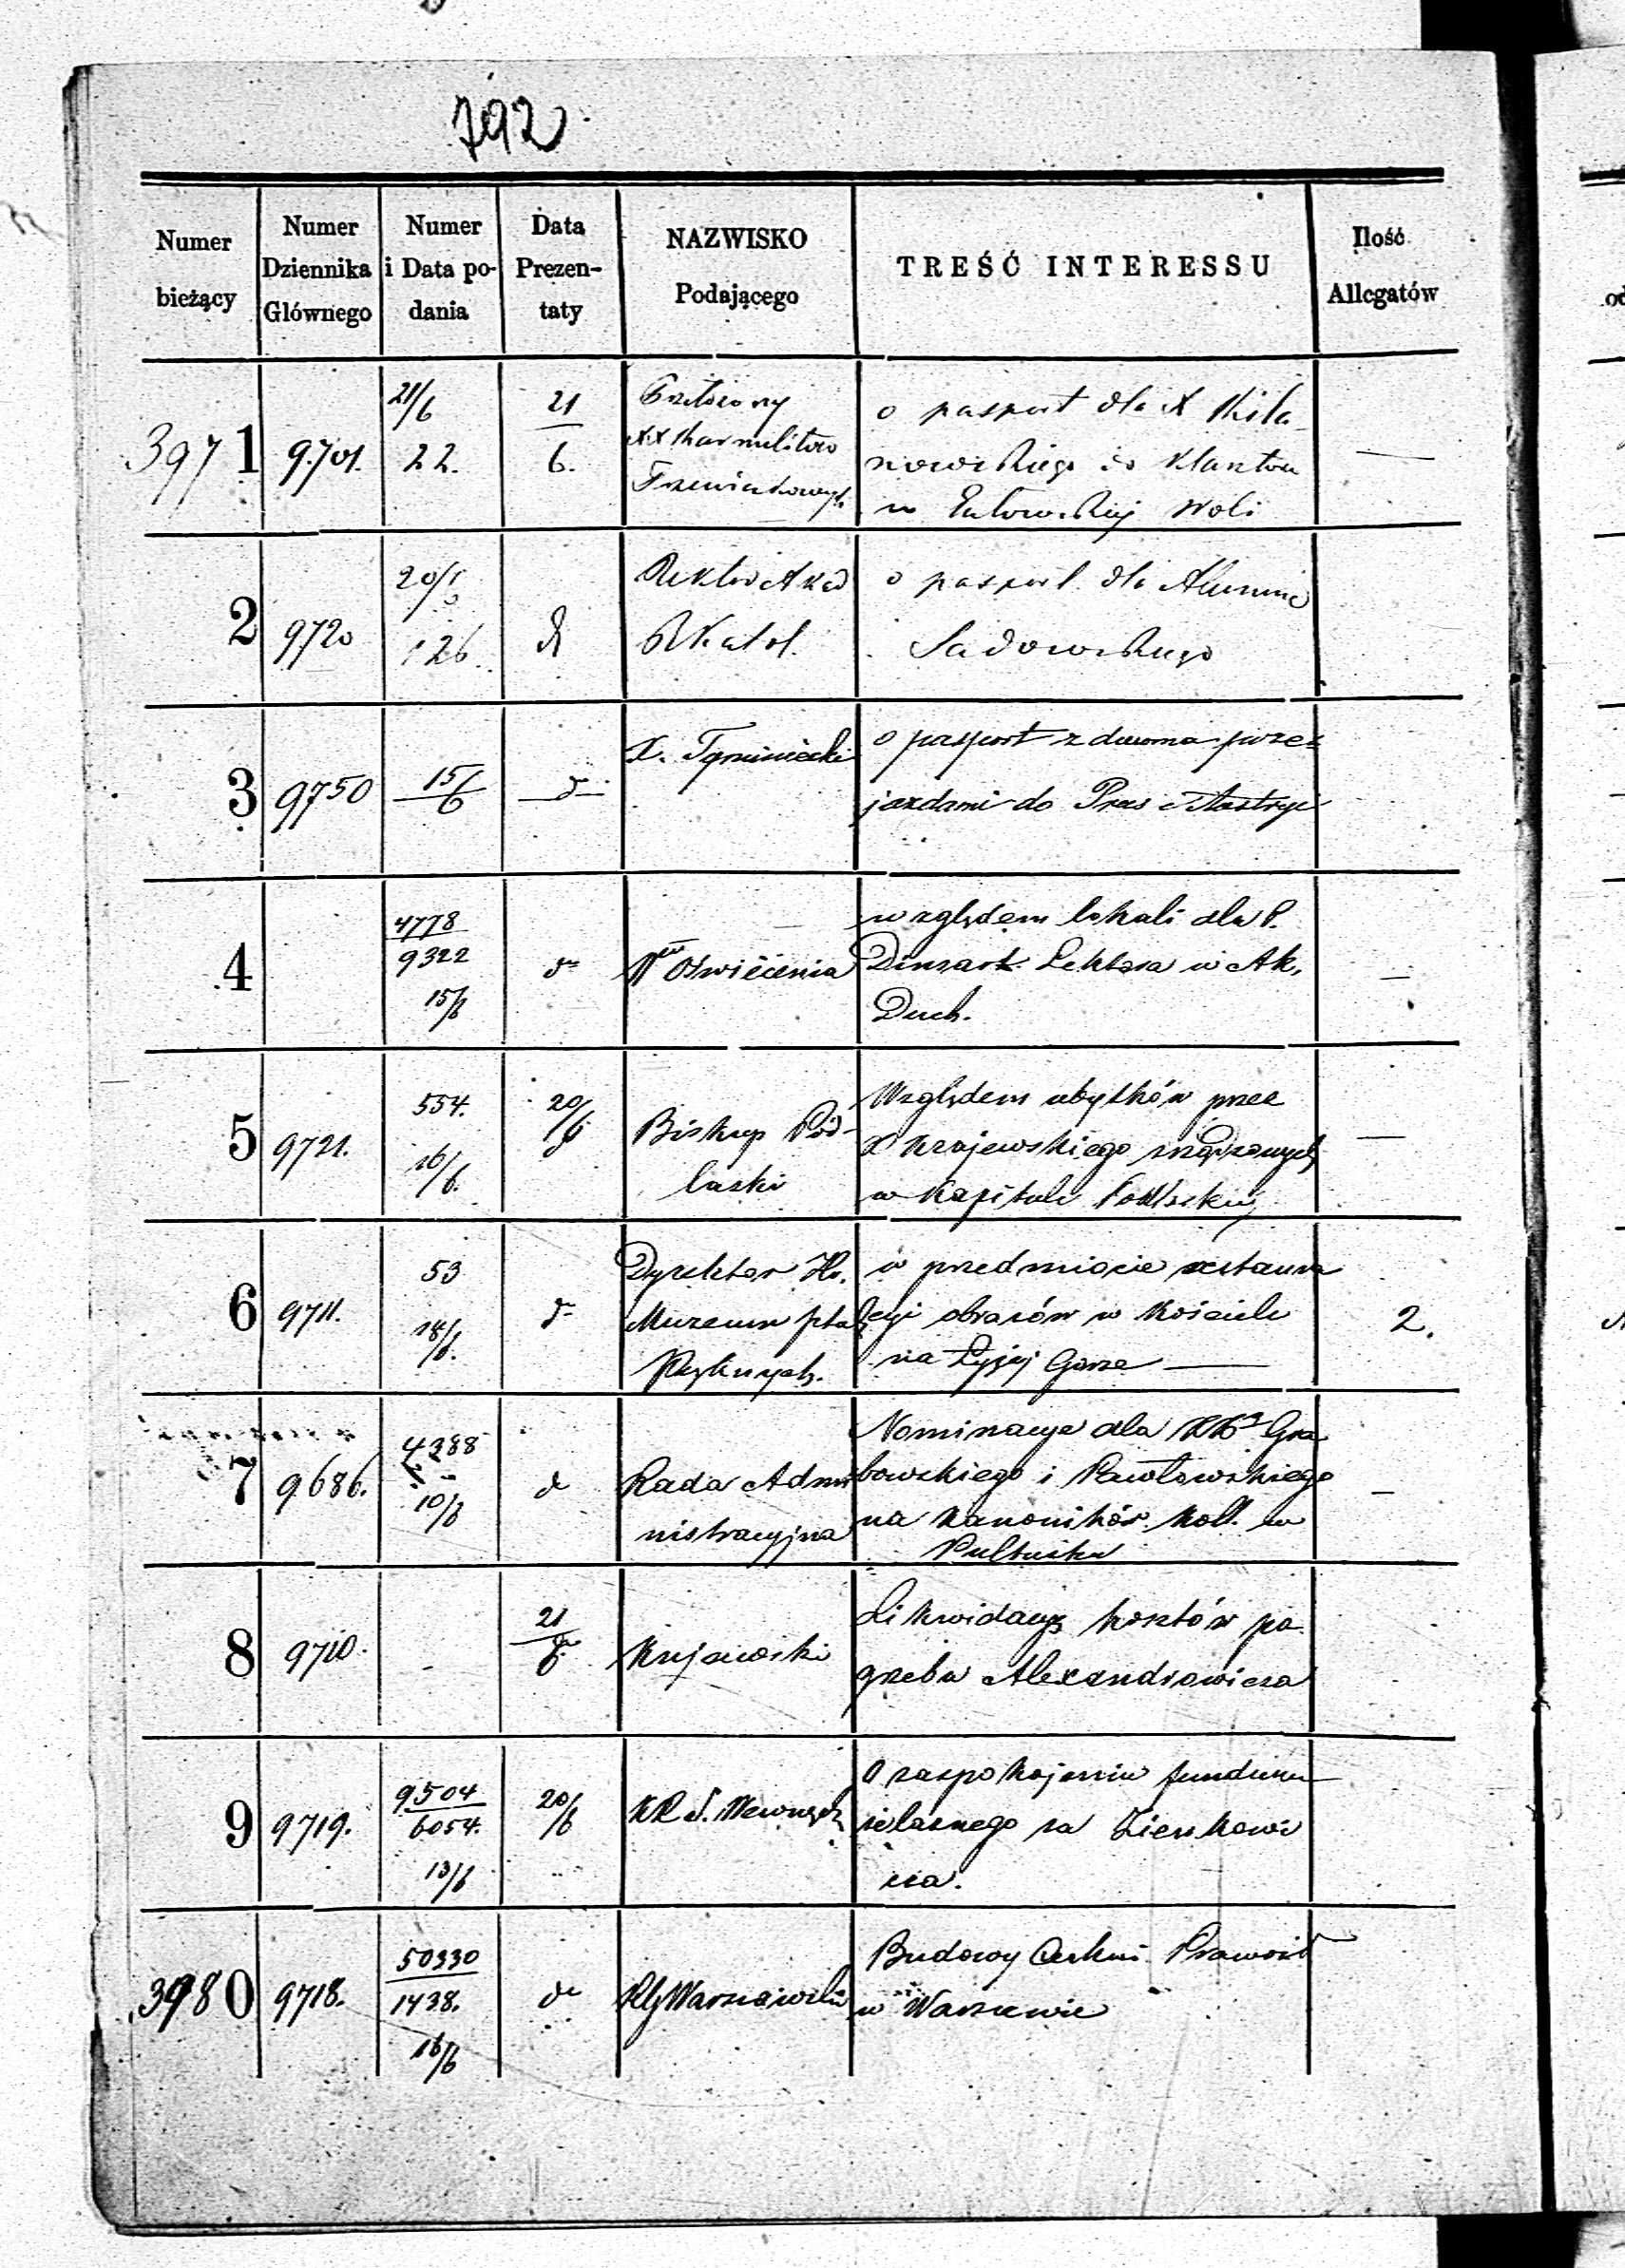 792
Numer bieżący
Numer Dziennika Głównego
Numer i Data podania
Data Prezentaty
NAZWISKO Podającego
TREŚĆ INTERESSU
Ilość Allegatów
3971
9701.
21/6
22.
21
6.
XX Karmelitów
Trzewiczkowych
o pasport dla X Kila-
nowskiego do Klasztoru
w Woli
—
2
9720
126
Rektor Akad
R Katol.
o pasport dla Alumna
Sadowskiego
3
9750
15/6
d
X. Tymieniecki
o pasport z dwoma prze-
jazdami do Prus i Austryi
4
4778
9322
15/6
do
Oświecenia
względem lokali dla P.
Lektora w Ak.
Duch.
—
5
9721.
554.
16/6.
20/6
Biskup Pod-
laski
Względem ubytków przez
X Krajewskiego zrządzonych
w Kapitule Podlaskiej
—
6
9711.
53
18/6.
do
Dyrektor
Muzeum Sztuk
Pięknych.
w przedmiocie restaura
cyi obrazów w Kościele
na Łysej Górze —
2.
7
9686.
4388
10/6
do
Rada Admi
nistracyjna
Nominacye dla XX Gra
bowskiego i Pawłowskiego
na Kanoników Koll. w
Pułtusku
—
8
9710.
-
21
6
Kujawski
Likwidacya kosztów po
grzebu Alexandrowicza
9
9719.
9504
6054.
13/6
20/6
KRS. Wewnętrz
O zaspokojeniu funduszu
żelaznego za Zienkowi
cza.
3980
9718.
50330
1438.
16/6
do
RG Warszawski
Budowy Cerkwi Prawosł
w Warszawie